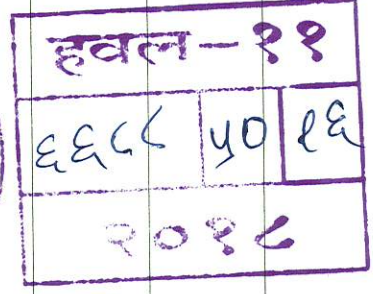 हवल-११
६६८८ ५० १६
२०१८